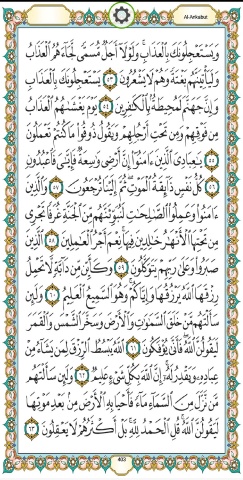 Al-Ankabut
وَيَسْتَعْجِلُونَكَ بِالْعَذَابِ وَلَوْلَا أَجَلٌ مُّسَمًّى لَّجَاءَهُمُ الْعَذَابُ
وَلَيَأْتِيَنَّهُم بَغْتَةً وَهُمْ لَا يَشْعُرُونَ ٥٣ يَسْتَعْجِلُونَكَ بِالْعَذَابِ
وَإِنَّ جَهَنَّمَ لَمُحِيطَةٌ بِالْكَافِرِينَ ٥٤ يَوْمَ يَغْشَاهُمُ الْعَذَابُ
مِن فَوْقِهِمْ وَمِن تَحْتِ أَرْجُلِهِمْ وَيَقُولُ ذُوقُوا مَا كُنتُمْ تَعْمَلُونَ
٥٥ يَاعِبَادِيَ الَّذِينَ ءَامَنُوا إِنَّ أَرْضِي وَاسِعَةٌ فَإِيَّايَ فَاعْبُدُونِ
٥٦ كُلُّ نَفْسٍ ذَائِقَةُ الْمَوْتِ ثُمَّ إِلَيْنَا تُرْجَعُونَ ٥٧ وَالَّذِينَ
ءَامَنُوا وَعَمِلُوا الصَّالِحَاتِ لَنُبَوِّئَنَّهُم مِّنَ الْجَنَّةِ غُرَفًا تَجْرِي
مِن تَحْتِهَا الْأَنْهَارُ خَالِدِينَ فِيهَا نِعْمَ أَجْرُ الْعَامِلِينَ ٥٨ الَّذِينَ
صَبَرُوا وَعَلَى رَبِّهِمْ يَتَوَكَّلُونَ ٥٩ وَكَأَيِّن مِّن دَابَّةٍ لَّا تَحْمِلُ
رِزْقَهَا اللَّهُ يَرْزُقُهَا وَإِيَّاكُمْ وَهُوَ السَّمِيعُ الْعَلِيمُ ٦٠ وَلَئِن
سَأَلْتَهُم مَّنْ خَلَقَ السَّمَاوَاتِ وَالْأَرْضَ وَسَخَّرَ الشَّمْسَ وَالْقَمَرَ
لَيَقُولُنَّ اللَّهُ فَأَنَّى يُؤْفَكُونَ ٦١ اللَّهُ يَبْسُطُ الرِّزْقَ لِمَن يَشَاءُ مِنْ
عِبَادِهِ وَيَقْدِرُ لَهُ إِنَّ اللَّهَ بِكُلِّ شَيْءٍ عَلِيمٌ ٦٢ وَلَئِن سَأَلْتَهُم
مَّن نَّزَّلَ مِنَ السَّمَاءِ مَاءً فَأَحْيَا بِهِ الْأَرْضَ مِن بَعْدِ مَوْتِهَا
لَيَقُولُنَّ اللَّهُ قُلِ الْحَمْدُ لِلَّهِ بَلْ أَكْثَرُهُمْ لَا يَعْقِلُونَ ٦٣
403